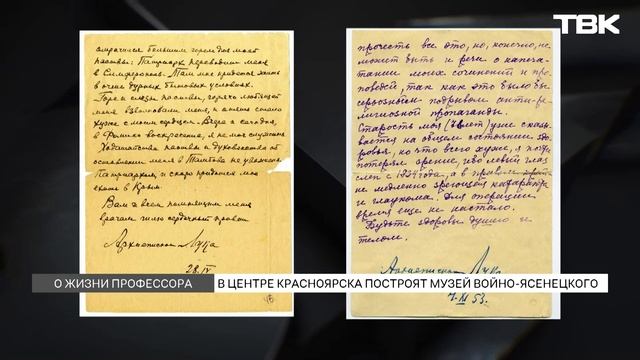 ТВК
омрачился большим горем для моей
паствы: Патриарх переводит меня
в Симферополь. Там мне придется жить
в очень дурных бытовых условиях.
Горе и слезы паствы, горячо любящей
меня взволновали меня, и стало
хуже с моим сердцем. Вчера и сегодня,
в Фомино воскресенье, я не мог служить
Ходатайства паствы и духовенства об
оставлении меня в Тамбове не уважены
Патриархом, и скоро придется мне
ехать в Крым.
Вам и всем помнящим меня
врачам шлю сердечный привет
Архиепископ Лука
28.IV
прочесть все это, но, конечно, не
может быть и речи о напеча-
тании моих сочинений и про-
поведей, так как это было бы
серьозным подрывом анти-ре-
лигиозной пропаганды.
Старость моя уже сказы-
вается на общем состоянии здо-
ровья, но что всего хуже, я скоро
потеряю зрение, ибо левый глаз
слеп с 1924 года, а в правом
не медленно зреющая катаракта
и глаукома. Для операции
время еще не настало.
Будьте здоровы душою и
телом.
Архиепископ Лука
53.
О ЖИЗНИ ПРОФЕССОРА
В ЦЕНТРЕ КРАСНОЯРСКА ПОСТРОЯТ МУЗЕЙ ВОЙНО-ЯСЕНЕЦКОГО